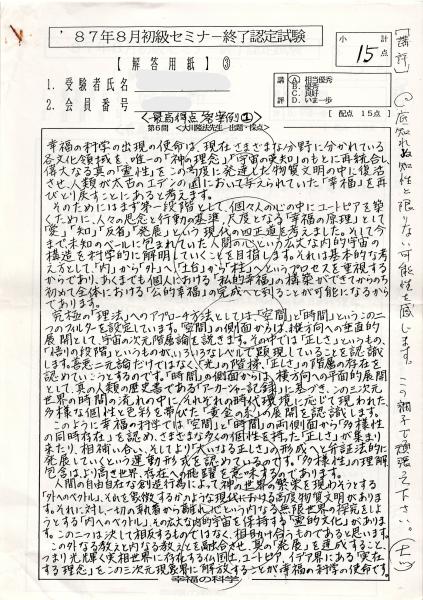 '87年8月初級セミナー終了認定試験
【解答用紙】③
小計
15点
1. 受験者氏名
2. 会員番号
講評
A. 相当優秀
B. 優秀
C. 良好
D. いま一歩
[配点 15点]
<最高得点答案例①>
第6問 <大川隆法先生―出題・採点>
幸福の科学の出現の使命は、現在さまざまな分野に分かれている
各文化領域を、唯一の「神の理念」「宇宙の英知」のもとに再統合し、
偉大なる真の「霊性」をこの高度に発達した物質文明の中に復活
させ、人類が太古のエデンの園において与えられていた「幸福」を再
びとり戻すことにあると考えます。
そのためにはまず第一段階として、個々人の心の中にユートピアを築
くために、人々の思念と行動の基準、尺度となる「幸福の原理」として
「愛」「知」「反省」「発展」という現代の四正道を考えました。そして今
まで未知のベールに包まれていた人間の心という広大な内的宇宙の
構造を科学的に解明していくことを目指します。それは基本的な考
え方として、「内」から「外」へ、「土台」から「柱」へというプロセスを重視する
からであり、あくまでも個人における「私的幸福」の構築ができてからのち
初めて全体における「公的幸福」の完成へと到ることが可能になるから
であります。
究極の「理法」へのアプローチ方法としては、「空間」と「時間」というこの二
つのフィルターを設定しています。「空間」の側面からは、縦方向への垂直的
展開として、宇宙の次元階層論を説きます。その中では「正しさ」というもの、
「悟りの段階」というものが、いろいろなレベルで顕現していることを認識
します。善悪二元論だけではなく、「光」の階梯、「正しさ」の階層の存在を
認めていこうとするのです。「時間」の側面からは、横方向への平面的展開
として、真の人類の歴史書である「アカーシャ記録」に基づき、この三次元
世界の時間の流れの中に、それぞれの時代環境に応じて現われた
多様な個性と色彩を帯びた「黄金の糸」の展開を認識します。
このように幸福の科学では「空間」と「時間」の両側面から「多様性
の同時存在」を認め、さまざまな多くの個性を持った「正しさ」が集まり
来たり、相補い合い、そしてより「大いなる正しさ」の形成へと弁証法的に
発展していくという運動形式を認めているのです。「多様性」の理解
包含はより高き世界、存在への飛翔を意味するのであります。
人間の自由自在な創造行為によって神の世界の繁栄を現わそうとする
「外へのベクトル」、それを象徴するかのような現代における高度物質文明があります。
それに対し一切の執着から離れ、心という内なる無限世界の探究をしよ
うとする「内へのベクトル」、その広大な内的宇宙を保持する「霊的文化」があります。
この二つは決して相反するものではなく、相助け合うものであると思います。
この外なる教えと内なる教えとを融合させ、真の「発展」を達成すること、
つまり光輝く実相世界に存在する仏国土、ユートピア、イデア界にある「実在
する理念」をこの三次元現象界に解放することが幸福の科学の使命です。
幸福の科学
[講評]
底知れぬ知性と限りない可能性を感じます。この調子で頑張って下さい。